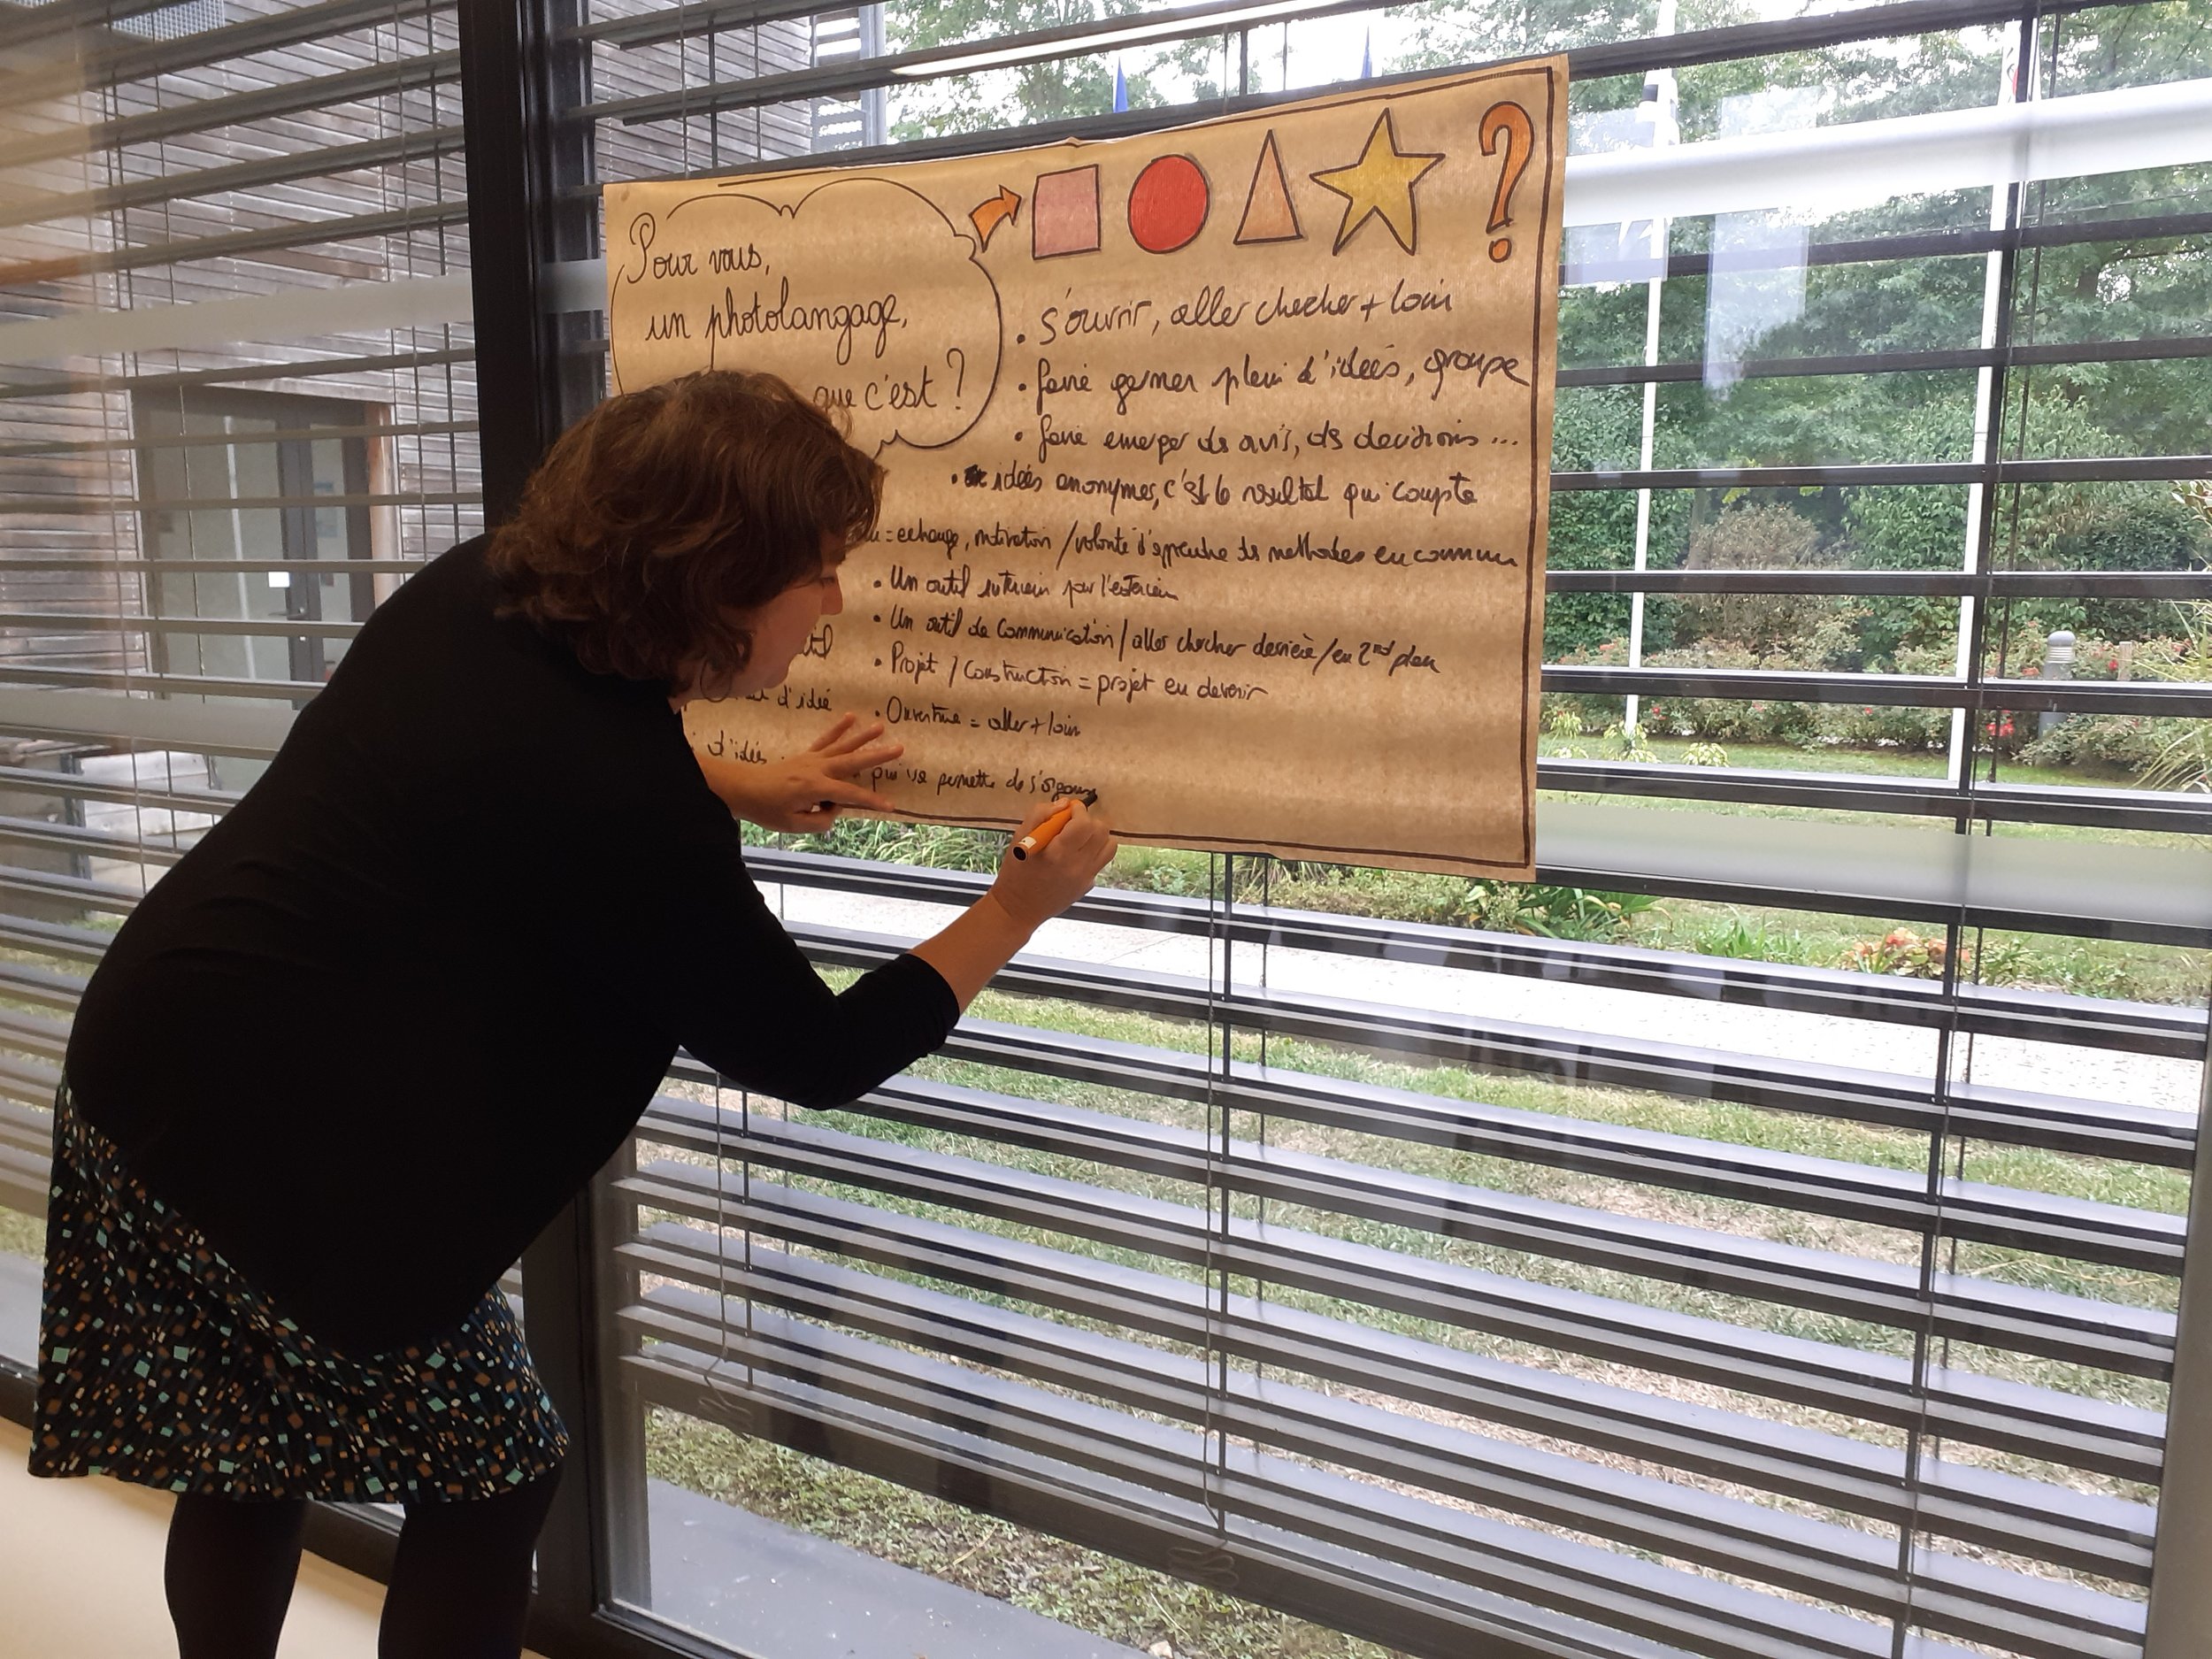 Pour vous,
un photolangage,
que c'est ?
?
• s'ouvrir, aller chercher + loin
• faire germer plein d'idées, groupe
• faire emerger des avis, des decisions ...
• idées anonymes, c'est le resultat qui compte
= echange, motivation / volonté d'apprendre des methodes en commun
• Un outil interieur pour l'exterieur
• Un outil de communication / aller chercher derriere / en 2nd plan
• Projet / Construction = projet en devenir
d'idée
• Ouverture = aller + loin
d'idées
permettre de s'organis